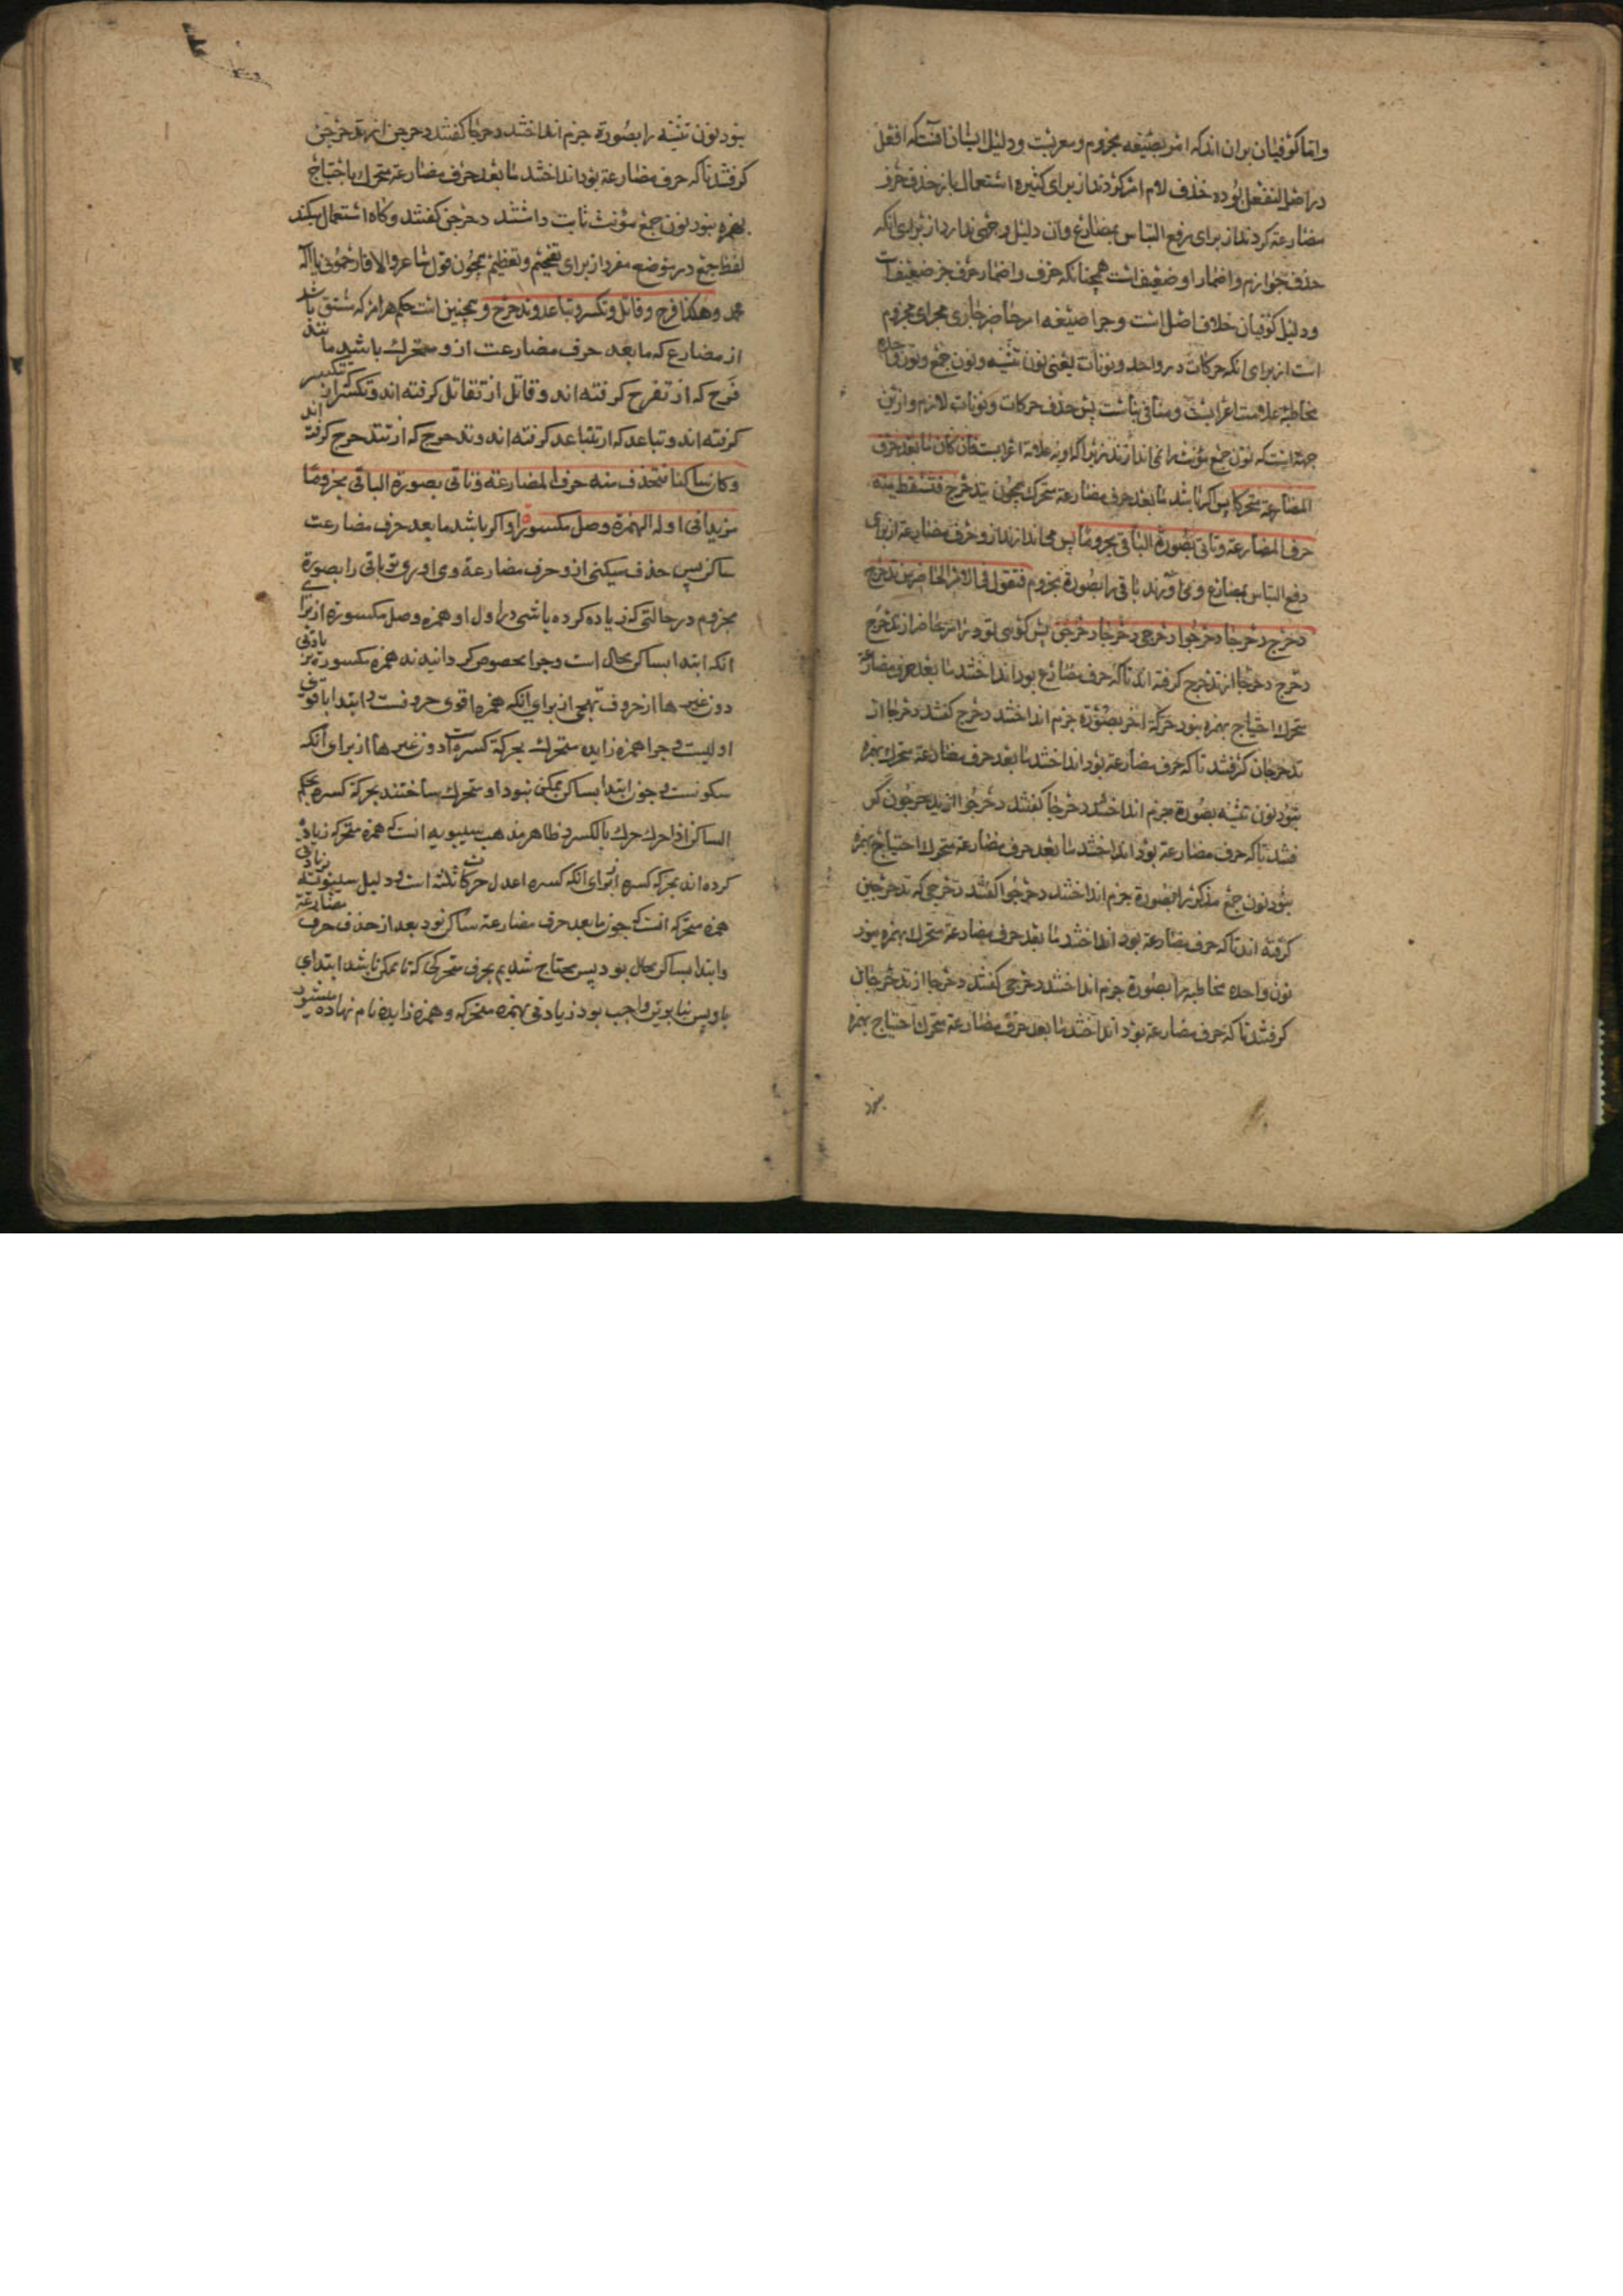 واما کوفیان بران اند که امر بصیغه مجزوم و معربست و دلیل ایشان انست که افعل
در اصل لتفعل بوده حذف لام امر کردند از برای کثیره استعمال باز حذف حرف
مضارعة کردند از برای رفع التباس بمضارع و آن دلیل وجهی ندارد از برای انکه
حذف جوازم و اضمار او ضعیف است همچنانکه حذف و اضمار حرف جر ضعیف است
و دلیل کوفیان خلاف اصل است و چرا صیغه امر حاضر جاری مجرای مجزوم
است از برای انکه حرکات در واحد و نونات یعنی نون تثنیه و نون جمع و نون واحده
مخاطبه علامت اعرابست و منافی بناست پس حذف حرکات و نونات لازم و ازین
جهة است که نون جمع مؤنث را نمی اندازند زیرا که او نه علامة اعرابست فان کان ما بعد حرف
المضارعة متحرکا پس اکر باشد ما بعد حرف مضارعة متحرک همچون یدحرج فتسقط منه
حرف المضارعة وتاتی بصورة الباقی مجزوما پس می اندازند از و حرف مضارعة از برای
دفع التباس بمضارع و می آورند باقی را بصورة مجزوم فتقول فی الامر الحاضر من تدحرج
دحرج دحرجا دحرجوا دحرجی دحرجا دحرجن پس کوئی تو در امر حاضر از تدحرج
دحرج دحرج را از تدحرج کرفته اند تا که حرف مضارع بود انداختند ما بعد حرف مضارعة
متحرک احتیاج بهمزه نبود حرکة اخر بصورة جزم انداختند دحرج کفتند دحرجا از
تدحرجان کرفتند تا که حرف مضارعة بود انداختند ما بعد حرف مضارعة متحرک بهمزه
نبود نون تثنیه بصورة جزم انداختند دحرجا کفتند دحرجوا از تدحرجون کر
فتند تا که حرف مضارعة بود انداختند ما بعد حرف مضارعة متحرک احتیاج بهمزه
نبود نون جمع مذکر را بصورة جزم انداختند دحرجوا کفتند دحرجی که تدحرجین
کرفته اند تا که حرف مضارعة بود انداختند ما بعد حرف مضارعة متحرک بهمزه نبود
نون واحده مخاطبه را بصورة جزم انداختند دحرجی کفتند دحرجا از تدحرجان
کرفتند تا که حرف مضارعة بود انداختند ما بعد حرف مضارعة متحرک احتیاج بهمزه
نبود
نبود نون تثنیه را بصورة جزم انداختند دحرجا کفتند دحرجن از تدحرجن
کرفتند تا که حرف مضارعة بود انداختند ما بعد حرف مضارعة متحرک باحتیاج
بهمزه نبود نون جمع مؤنث ثابت داشتند دحرجن کفتند و کاه استعمال میکند
لفظ جمع در موضع مفرد از برای تفخیم و تعظیم همچون قول شاعر و الا فارحمونی یا اله
محمد وهکذا فرح وقاتل وتکسر وتباعد وتدحرج و همچنین است حکم هر امر که مشتق باشد
از مضارع که ما بعد حرف مضارعت ازو متحرک باشد مانند
فرح که از تفرح کرفته اند و قاتل از تقاتل کرفته اند و تکسر که از تتکسر
کرفته اند و تباعد که از تتباعد کرفته اند و تدحرج که از تتدحرج کرفته اند
وکان ساکنا فتحذف منه حرف المضارعة وتاتی بصورة الباقی مجزوما
مزیدا فی اوله الهمزة وصل مکسورة و اکر باشد ما بعد حرف مضارعت
ساکن پس حذف میکنی ازو حرف مضارعة و می اوری تو باقی را بصورة
مجزوم در حالتی که زیاده کرده باشی در اول او همزه وصل مکسوره از برای
انکه ابتدا بساکن محال است و چرا مخصوص کردانیدند همزه مکسوره بزیادتی
دون غیرها از حروف تهجی از برای انکه همزه اقوی حروفست و ابتدا باقوی
اولیست و چرا همزه زایده متحرک بحرکة کسره است دون غیرها از برای انکه
سکونست و چون ابتدا بساکن ممکن نبود او متحرک ساختند بحرکة کسره بحکم
الساکن اذا حرک حرک بالکسر و ظاهر مذهب سیبویه انست که همزه متحرکه زیاد
کرده اند بحرکه کسره از برای انکه کسره اعدل حرکات ثلثه است و دلیل سیبویه بزیادتی
همزه متحرکه انست که چون ما بعد حرف مضارعة ساکن بود بعد از حذف حرف مضارعة
و ابتدا بساکن محال بود پس محتاج شدیم بحرفی متحرکی که تا ممکن باشد ابتدای
باو پس بنا برین واجب بود زیادتی بهمزه متحرکه و همزه زایده نام نهاده میشود